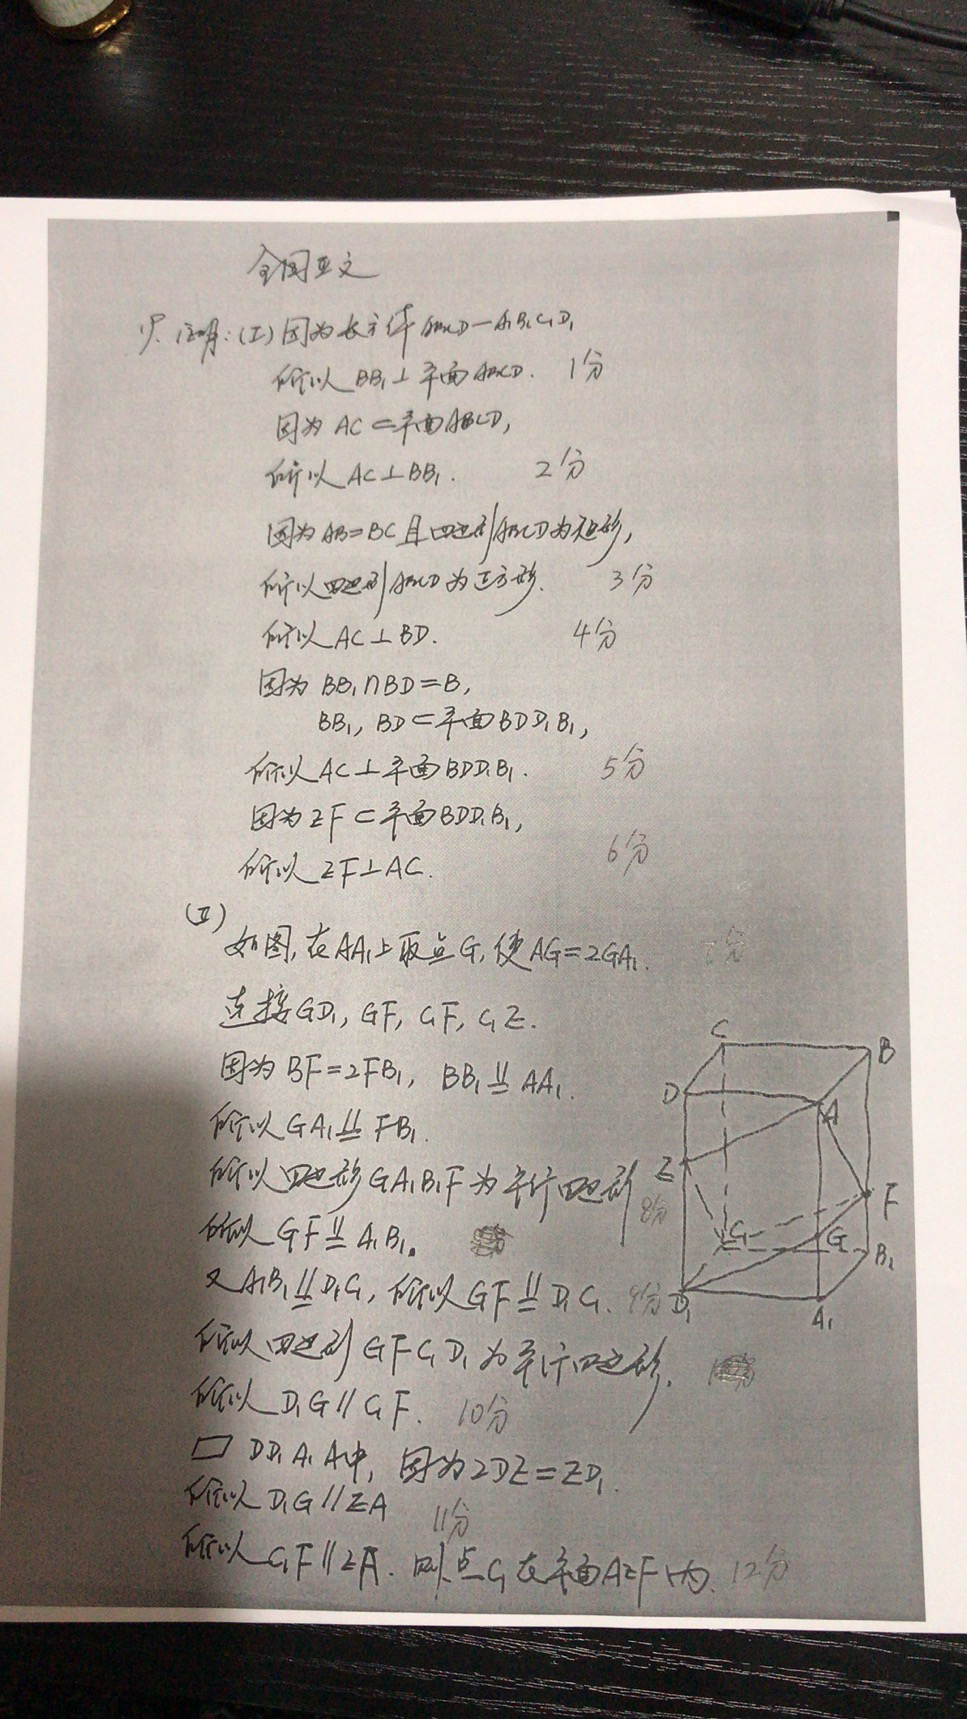 全国Ⅲ文
19. 证明:(Ⅰ)因为长方体ABCD-A₁B₁C₁D₁
所以 BB₁⊥平面ABCD. 1分
因为 AC⊂平面ABCD,
所以 AC⊥BB₁. 2分
因为 AB=BC 且四边形ABCD为矩形,
所以四边形ABCD为正方形. 3分
所以 AC⊥BD. 4分
因为 BB₁∩BD=B,
BB₁, BD⊂平面BDD₁B₁,
所以 AC⊥平面BDD₁B₁. 5分
因为 EF⊂平面BDD₁B₁,
所以 EF⊥AC. 6分
(Ⅱ)
如图, 在AA₁上取点G, 使AG=2GA₁. 7分
连接GD₁, GF, C₁F, C₁E.
因为 BF=2FB₁, BB₁∥=AA₁.
所以 GA₁∥=FB₁.
所以四边形GA₁B₁F为平行四边形 8分
所以 GF∥=A₁B₁.
又A₁B₁∥=D₁C₁, 所以GF∥=D₁C₁. 9分
所以四边形GFC₁D₁为平行四边形.
所以 D₁G∥C₁F. 10分
▱DD₁A₁A中, 因为2DE=ED₁.
所以 D₁G∥EA 11分
所以 C₁F∥EA. 则点C₁在平面AEF内. 12分
C
B
D
A
E
F
C₁
G
B₁
D₁
A₁